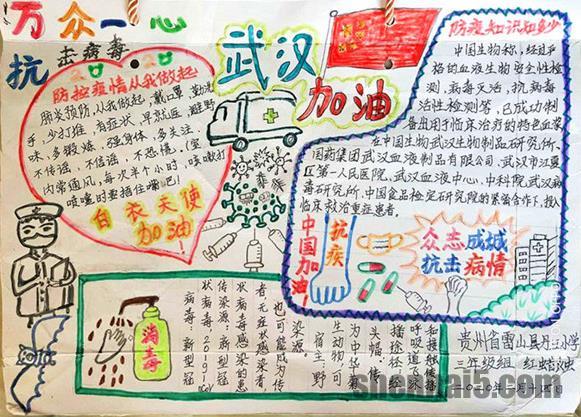 万众一心
抗击病毒
防控疫情从我做起!
肺炎预防,从我做起,戴口罩,勤洗
手,少打堆,有症状,早就医,避野
味,多锻炼,强身体,多关注,
不传谣,不信谣,不恐慌,(室
内常通风,每次半个小时,咳嗽打
喷嚏时要捂住嘴巴)
白衣天使
加油
武汉
加油
防疫知识知多少
中国生物称,经过严
格的血液生物安全性检
测,病毒灭活,抗病毒
活性检测等,已成功制
备出用于临床治疗的特色血浆
在中国生物武汉生物制品研究所、
国药集团武汉血液制品有限公司、武汉市江夏
区第一人民医院、武汉血液中心、中科院武汉病
毒研究所、中国食品检定研究院的紧备合作下,投入
临床救治重症患者。
中国加油!
抗疾
众志成城
抗击病情
消毒
病毒:新型冠
状病毒2019-nCoV
传染源:新型冠
状病毒感染的患
者,无症状感染者
也可能成为传
染源。
宿主:野
生动物,可
为中华菊
头蝠。传
播途径:经
呼吸道飞沫
和接触传播
贵州省雷山县丹江小学
shenhai5.com